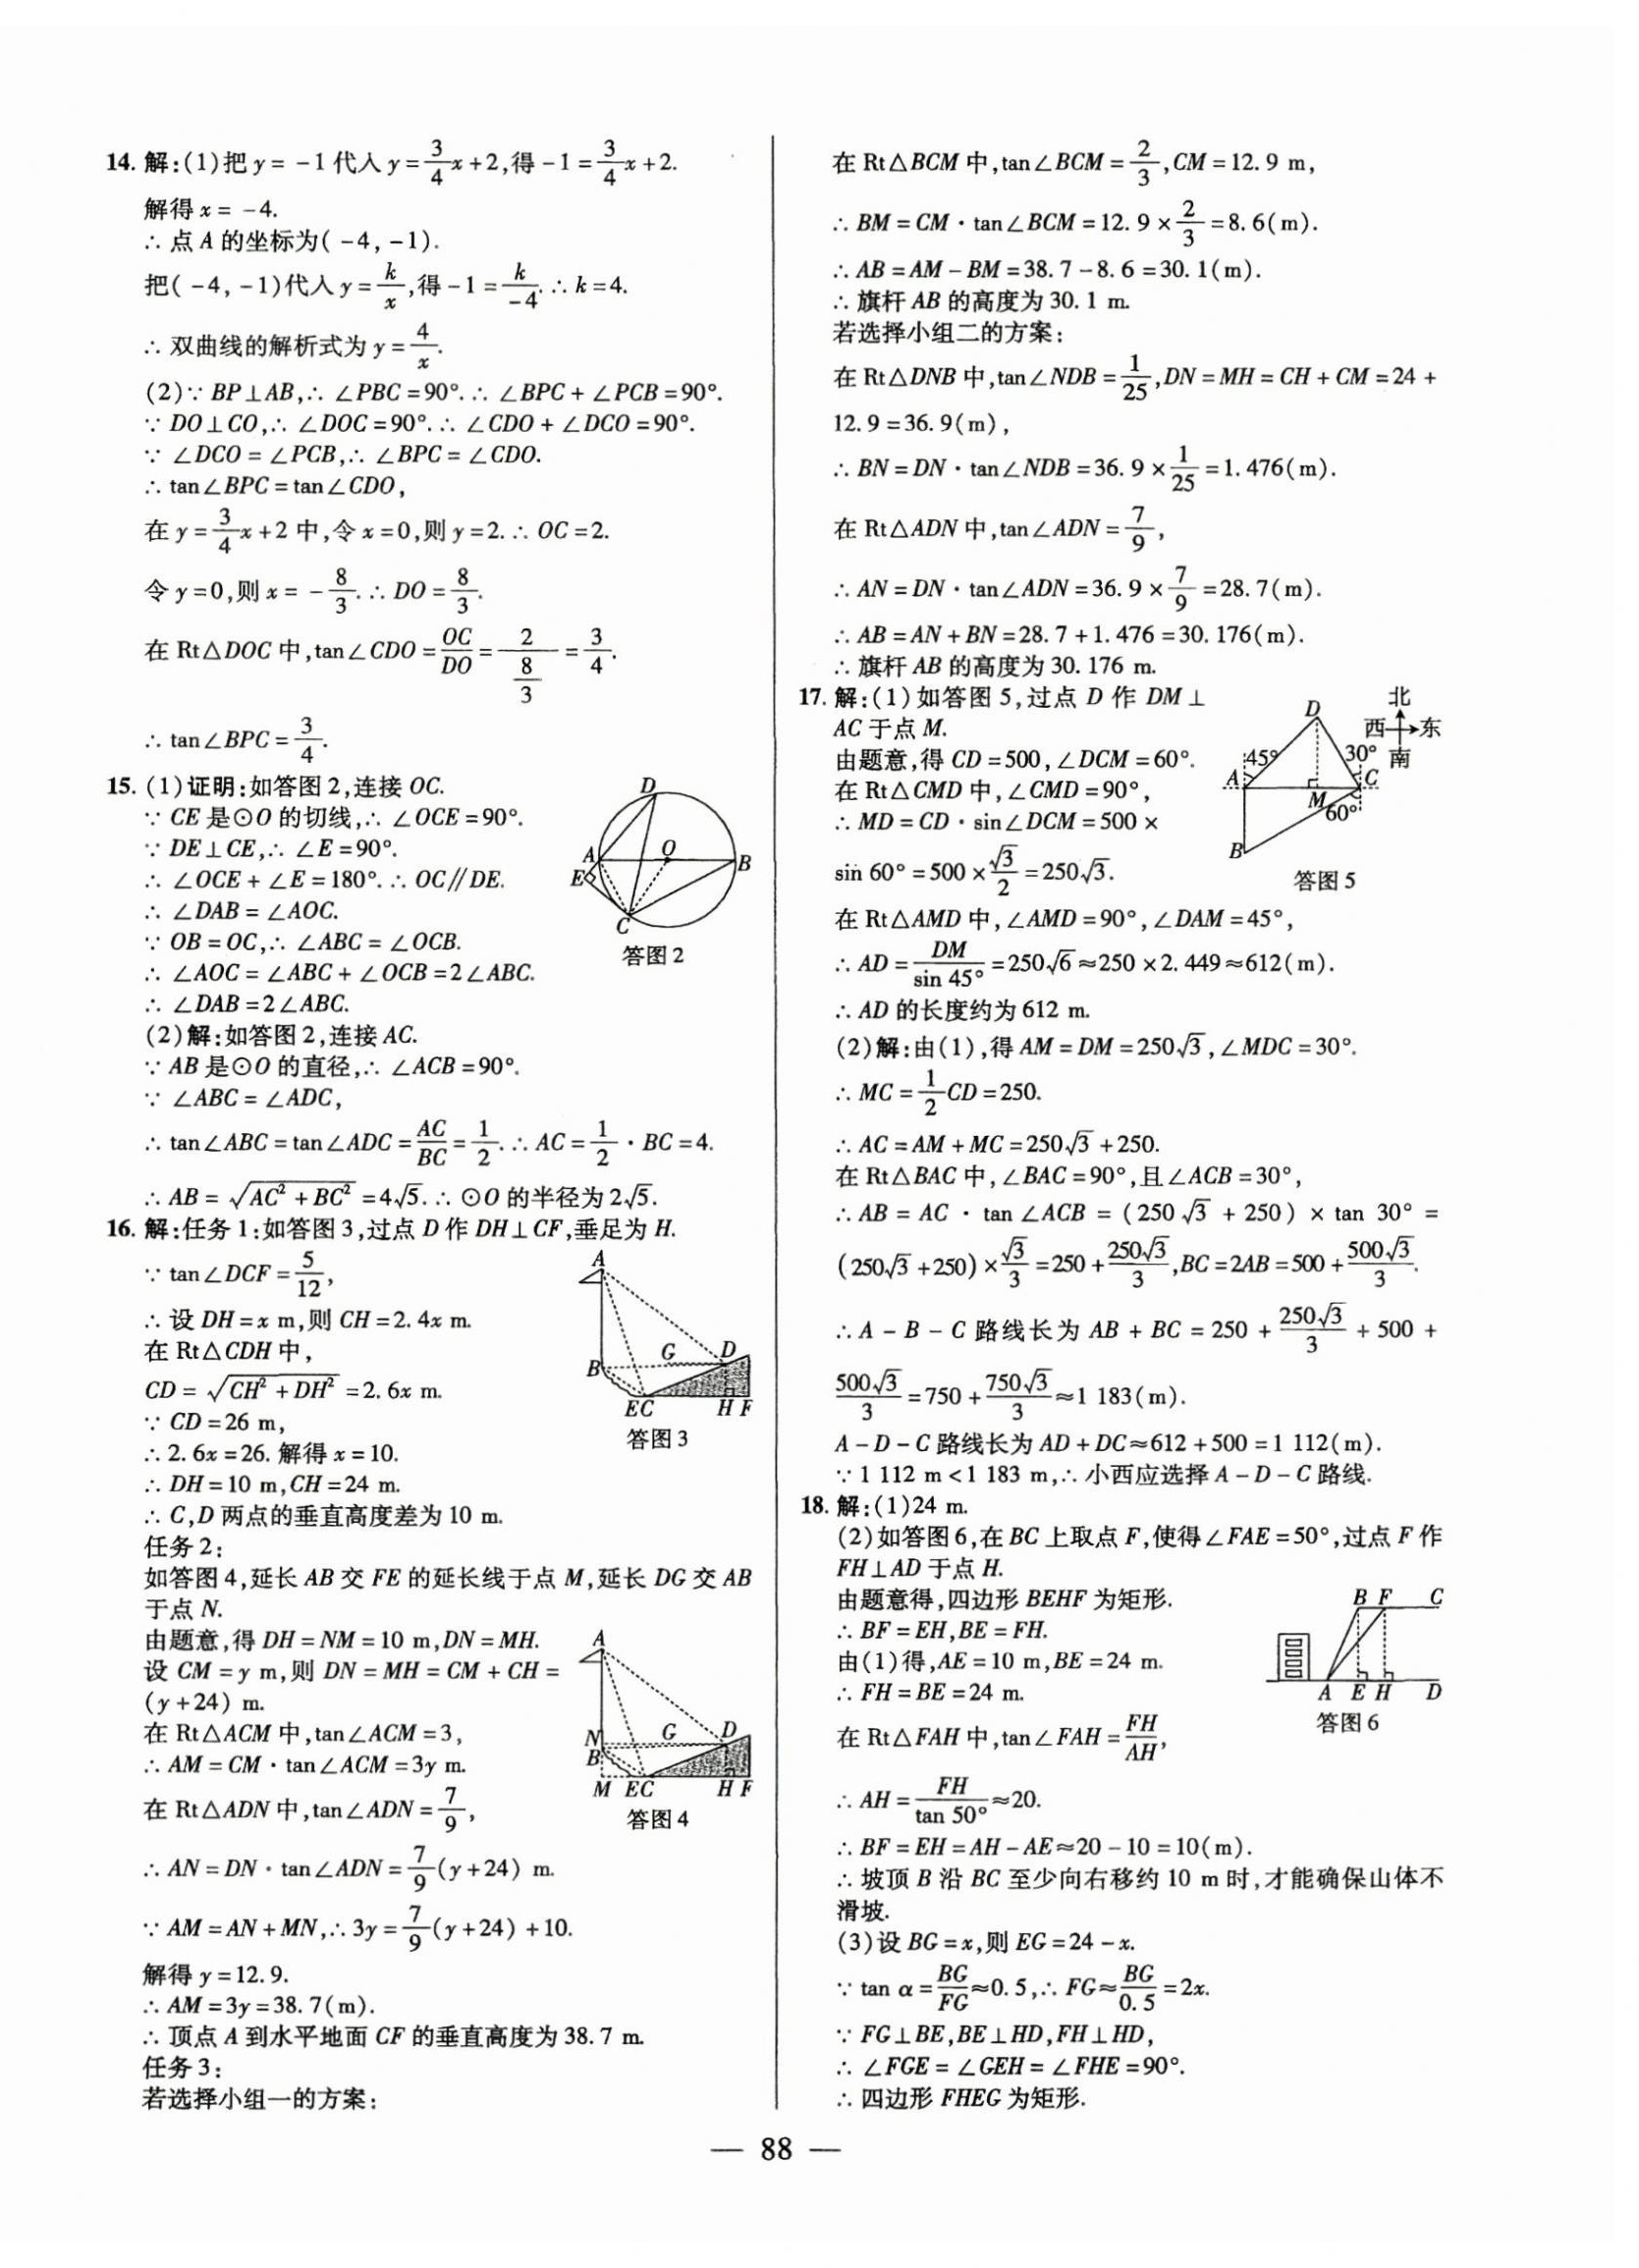 14. 解:(1)把 y = -1 代入 y = 3/4 x + 2,得 -1 = 3/4 x + 2.
解得 x = -4.
∴ 点 A 的坐标为( -4, -1).
把( -4, -1)代入 y = k/x,得 -1 = k/-4. ∴ k = 4.
∴ 双曲线的解析式为 y = 4/x.
(2)∵ BP⊥AB,∴ ∠PBC = 90°. ∴ ∠BPC + ∠PCB = 90°.
∵ DO⊥CO,∴ ∠DOC = 90°. ∴ ∠CDO + ∠DCO = 90°.
∵ ∠DCO = ∠PCB,∴ ∠BPC = ∠CDO.
∴ tan∠BPC = tan∠CDO,
在 y = 3/4 x + 2 中,令 x = 0,则 y = 2. ∴ OC = 2.
令 y = 0,则 x = - 8/3. ∴ DO = 8/3.
在 Rt△DOC 中,tan∠CDO = OC/DO = 2/(8/3) = 3/4.
∴ tan∠BPC = 3/4.
15. (1)证明:如答图 2,连接 OC.
∵ CE 是⊙O 的切线,∴ ∠OCE = 90°.
∵ DE⊥CE,∴ ∠E = 90°.
∴ ∠OCE + ∠E = 180°. ∴ OC∥DE.
∴ ∠DAB = ∠AOC.
∵ OB = OC,∴ ∠ABC = ∠OCB.
∴ ∠AOC = ∠ABC + ∠OCB = 2∠ABC.
∴ ∠DAB = 2∠ABC.
D
A O B
E
C
答图 2
(2)解:如答图 2,连接 AC.
∵ AB 是⊙O 的直径,∴ ∠ACB = 90°.
∵ ∠ABC = ∠ADC,
∴ tan∠ABC = tan∠ADC = AC/BC = 1/2. ∴ AC = 1/2 · BC = 4.
∴ AB = √(AC² + BC²) = 4√5. ∴ ⊙O 的半径为 2√5.
16. 解:任务 1:如答图 3,过点 D 作 DH⊥CF,垂足为 H.
∵ tan∠DCF = 5/12,
∴ 设 DH = x m,则 CH = 2.4x m.
在 Rt△CDH 中,
CD = √(CH² + DH²) = 2.6x m.
∵ CD = 26 m,
∴ 2.6x = 26. 解得 x = 10.
∴ DH = 10 m,CH = 24 m.
∴ C,D 两点的垂直高度差为 10 m.
A
B G D
EC H F
答图 3
任务 2:
如答图 4,延长 AB 交 FE 的延长线于点 M,延长 DG 交 AB
于点 N.
由题意,得 DH = NM = 10 m,DN = MH.
设 CM = y m,则 DN = MH = CM + CH =
(y + 24) m.
在 Rt△ACM 中,tan∠ACM = 3,
∴ AM = CM · tan∠ACM = 3y m.
在 Rt△ADN 中,tan∠ADN = 7/9,
A
N G D
B
M EC H F
答图 4
∴ AN = DN · tan∠ADN = 7/9 (y + 24) m.
∵ AM = AN + MN,∴ 3y = 7/9 (y + 24) + 10.
解得 y = 12.9.
∴ AM = 3y = 38.7(m).
∴ 顶点 A 到水平地面 CF 的垂直高度为 38.7 m.
任务 3:
若选择小组一的方案:
在 Rt△BCM 中,tan∠BCM = 2/3,CM = 12.9 m,
∴ BM = CM · tan∠BCM = 12.9 × 2/3 = 8.6(m).
∴ AB = AM - BM = 38.7 - 8.6 = 30.1(m).
∴ 旗杆 AB 的高度为 30.1 m.
若选择小组二的方案:
在 Rt△DNB 中,tan∠NDB = 1/25,DN = MH = CH + CM = 24 +
12.9 = 36.9(m),
∴ BN = DN · tan∠NDB = 36.9 × 1/25 = 1.476(m).
在 Rt△ADN 中,tan∠ADN = 7/9,
∴ AN = DN · tan∠ADN = 36.9 × 7/9 = 28.7(m).
∴ AB = AN + BN = 28.7 + 1.476 = 30.176(m).
∴ 旗杆 AB 的高度为 30.176 m.
17. 解:(1)如答图 5,过点 D 作 DM⊥
AC 于点 M.
由题意,得 CD = 500,∠DCM = 60°.
在 Rt△CMD 中,∠CMD = 90°,
∴ MD = CD · sin∠DCM = 500 ×
sin 60° = 500 × √3/2 = 250√3.
北
D
西 东
45° 30° 南
A C
M
60°
B
答图 5
在 Rt△AMD 中,∠AMD = 90°,∠DAM = 45°,
∴ AD = DM/sin 45° = 250√6 ≈ 250 × 2.449 ≈ 612(m).
∴ AD 的长度约为 612 m.
(2)解:由(1),得 AM = DM = 250√3,∠MDC = 30°.
∴ MC = 1/2 CD = 250.
∴ AC = AM + MC = 250√3 + 250.
在 Rt△BAC 中,∠BAC = 90°,且∠ACB = 30°,
∴ AB = AC · tan ∠ACB = (250√3 + 250) × tan 30° =
(250√3 + 250) × √3/3 = 250 + 250√3/3,BC = 2AB = 500 + 500√3/3.
∴ A - B - C 路线长为 AB + BC = 250 + 250√3/3 + 500 +
500√3/3 = 750 + 750√3/3 ≈ 1 183(m).
A - D - C 路线长为 AD + DC ≈ 612 + 500 = 1 112(m).
∵ 1 112 m < 1 183 m,∴ 小西应选择 A - D - C 路线.
18. 解:(1)24 m.
(2)如答图 6,在 BC 上取点 F,使得∠FAE = 50°,过点 F 作
FH⊥AD 于点 H.
由题意得,四边形 BEHF 为矩形.
∴ BF = EH,BE = FH.
由(1)得,AE = 10 m,BE = 24 m.
∴ FH = BE = 24 m.
在 Rt△FAH 中,tan∠FAH = FH/AH,
B F C
A E H D
答图 6
∴ AH = FH/tan 50° ≈ 20.
∴ BF = EH = AH - AE ≈ 20 - 10 = 10(m).
∴ 坡顶 B 沿 BC 至少向右移约 10 m 时,才能确保山体不
滑坡.
(3)设 BG = x,则 EG = 24 - x.
∵ tan α = BG/FG ≈ 0.5,∴ FG ≈ BG/0.5 = 2x.
∵ FG⊥BE,BE⊥HD,FH⊥HD,
∴ ∠FGE = ∠GEH = ∠FHE = 90°.
∴ 四边形 FHEG 为矩形.
— 88 —